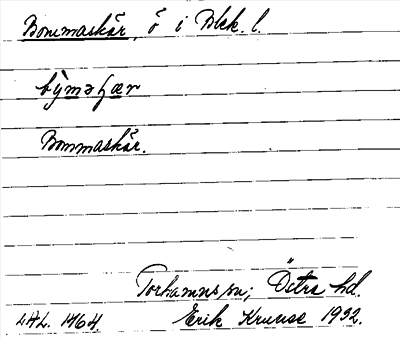 Bommaskär, ö i Blek. l.
Bommaskär.
Torhamns sn; Östra hd.
LAL. 1464 Erik Kruuse 1932.